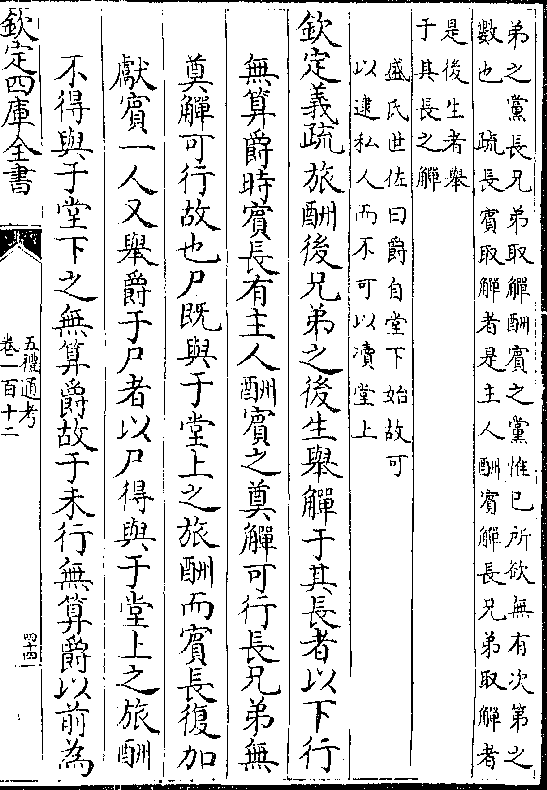 弟之黨長兄弟取觶酬賓之黨惟己所欲無有次第之
數也　疏長賓取觶者是主人酬賓觶長兄弟取觶者
是後生者舉
于其長之觶
盛氏世佐曰爵自堂下始故可
以逮私人而不可以瀆堂上
欽定義疏旅酬後兄弟之後生舉觶于其長者以下行
無算爵時賓長有主人酬賓之奠觶可行長兄弟無
奠觶可行故也尸既與于堂上之旅酬而賓長復加
獻賓一人又舉爵于尸者以尸得與于堂上之旅酬
不得與于堂下之無算爵故于未行無算爵以前為
欽定四庫全書
五禮通考
卷一百十二
四十四